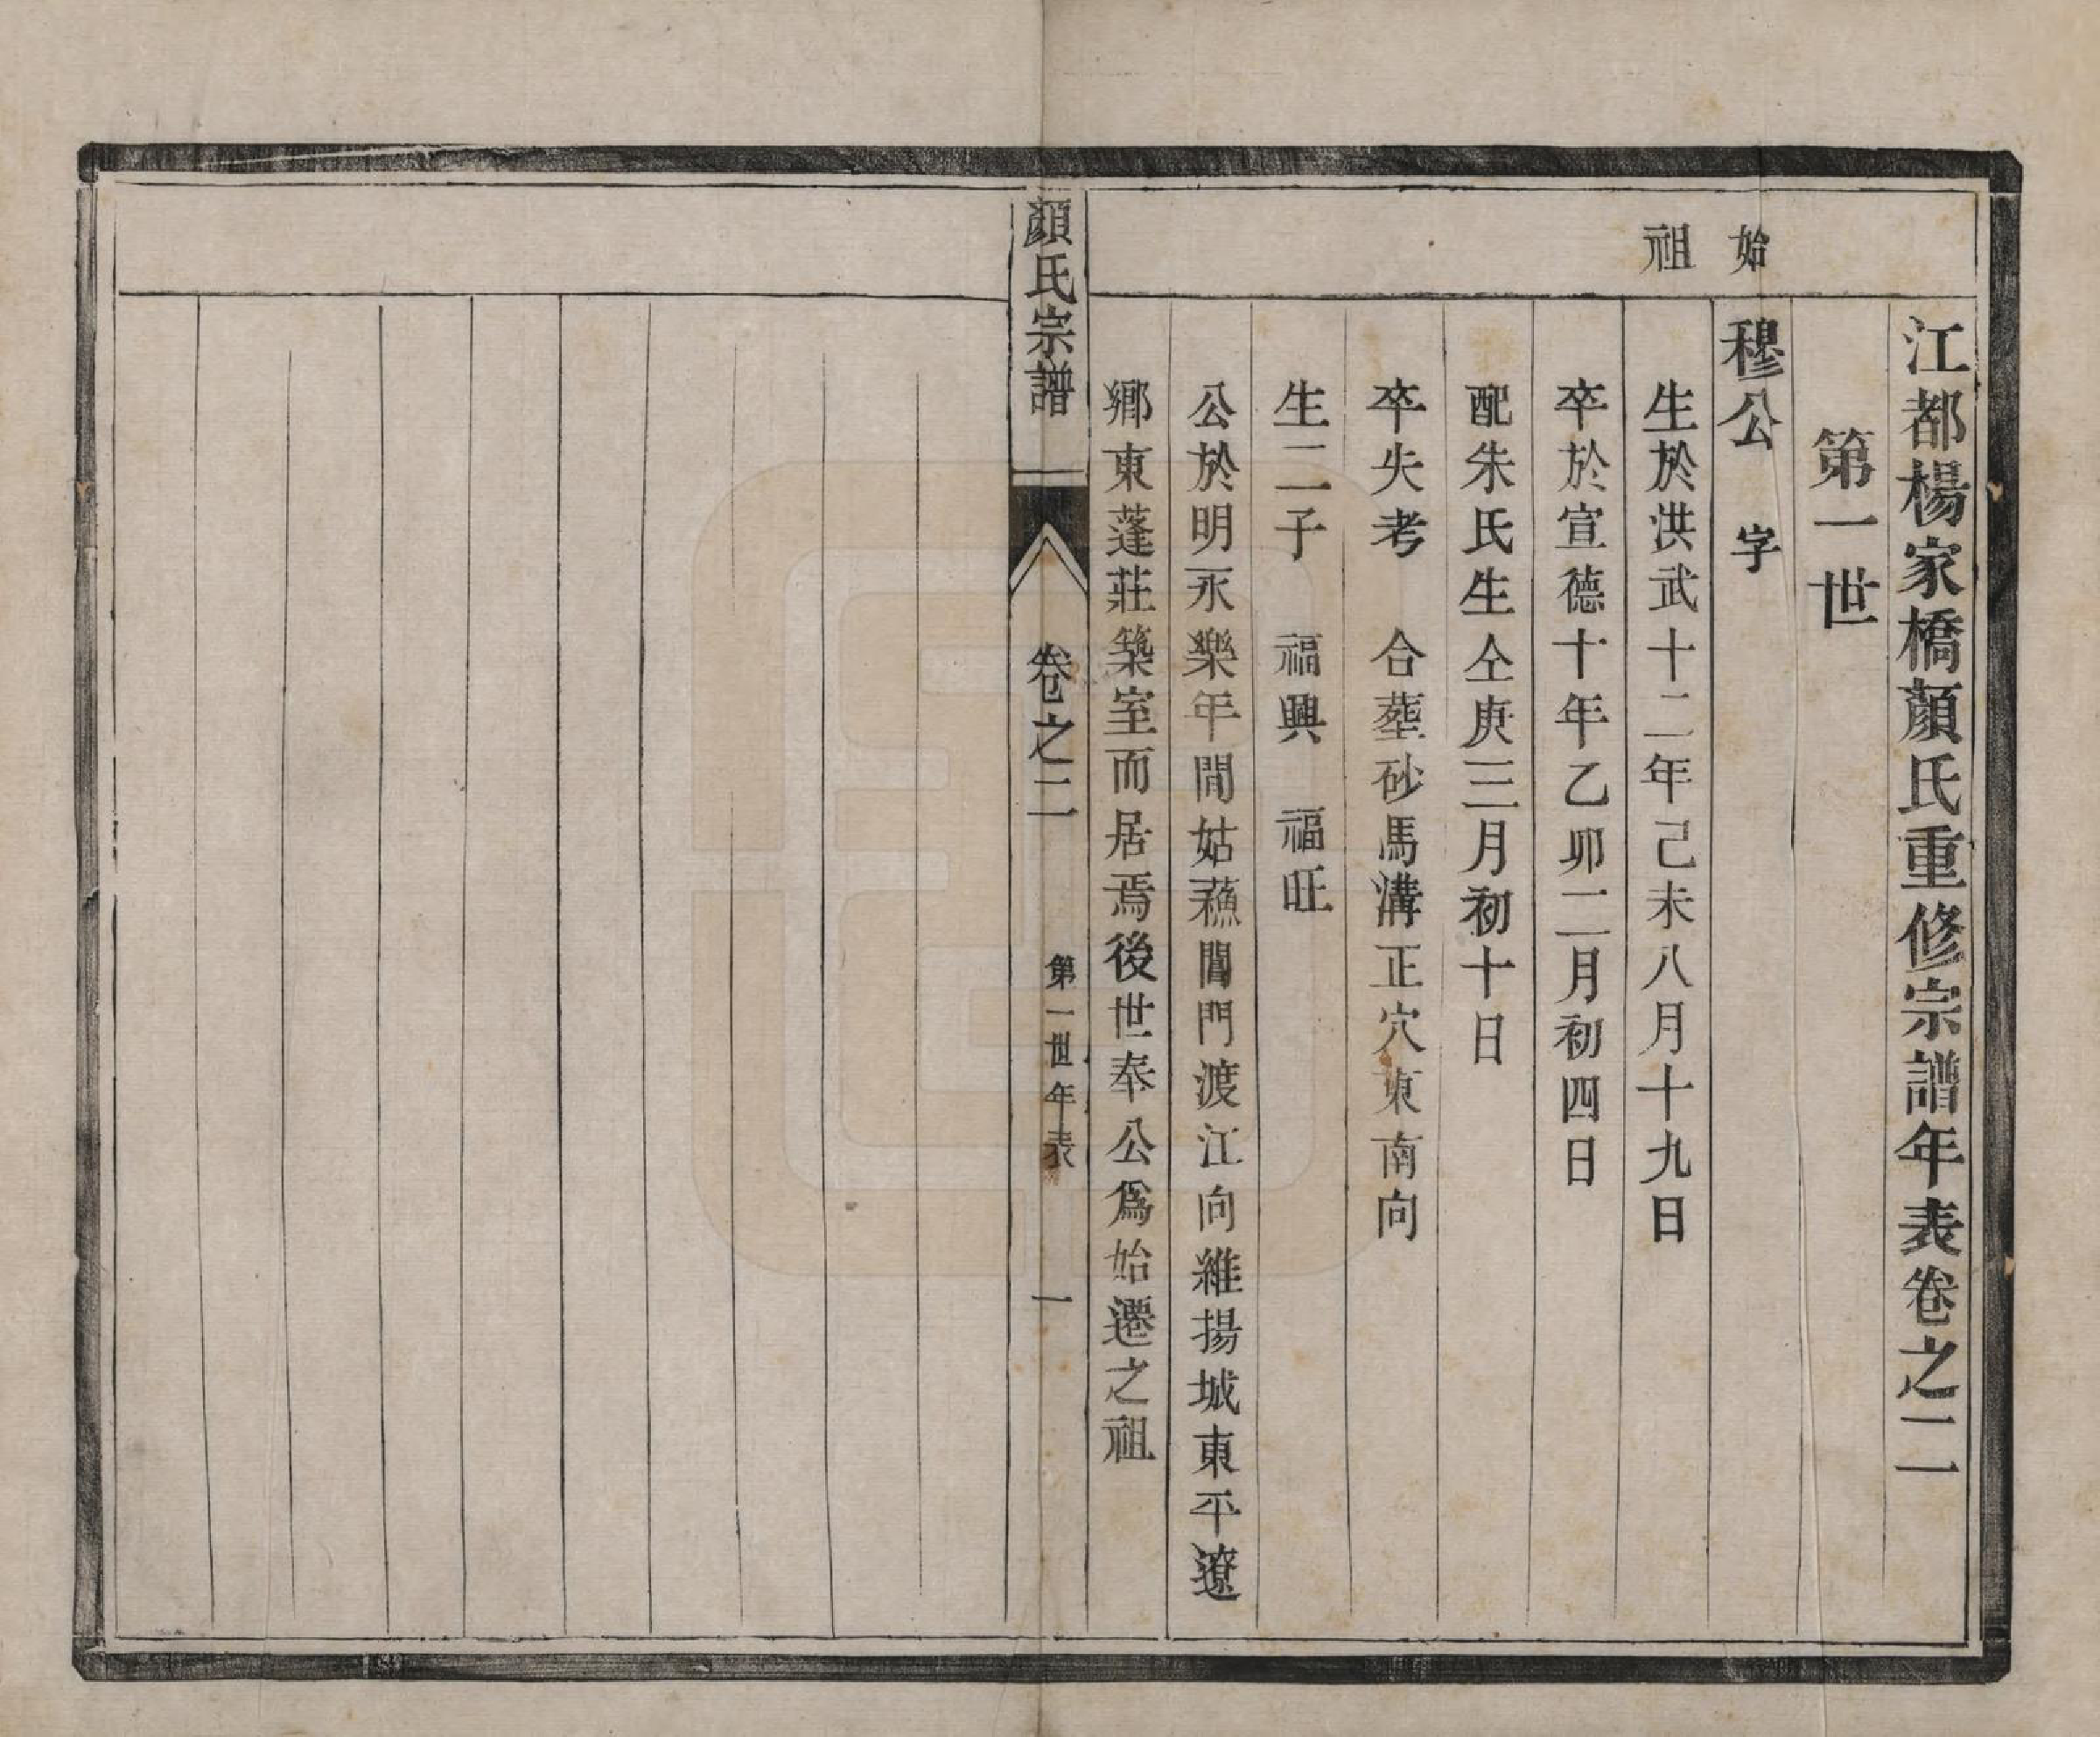 江都楊家橋顏氏重修宗譜年表卷之二
第一世
始祖
穆公　字
生於洪武十二年己未八月十九日
卒於宣德十年乙卯二月初四日
配朱氏生仝庚三月初十日
卒失考　合塟砂馬溝正穴東南向
生二子　福興　福旺
公於明永樂年間姑蘓閶門渡江向維揚城東平遼
鄉東蓬莊築室而居焉後世奉公爲始遷之祖
顏氏宗譜　卷之二　第一世年表　一